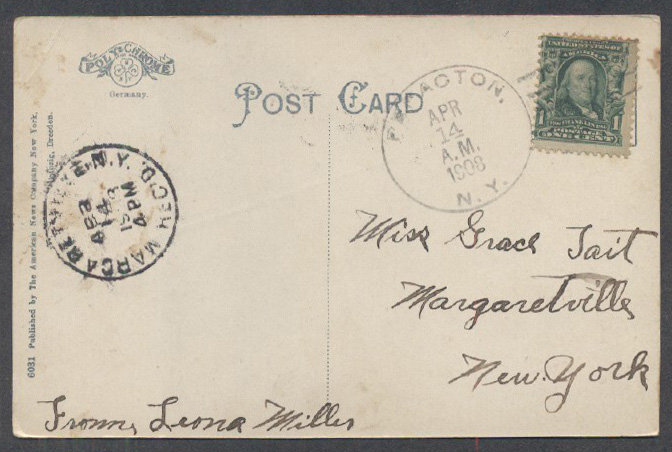 POLY-CHROME
Germany.
POST CARD
APR
14
A.M.
1908
N.Y.
UNITED STATES OF AMERICA
1 1
FRANKLIN
POSTAGE
ONE CENT
N.Y.
REC'D
APR
14
4 PM
6031 Published by The American News Company New York,
Leipzig, Dresden.
Miss Grace Tait
Margaretville
New York
From, Leona Miller